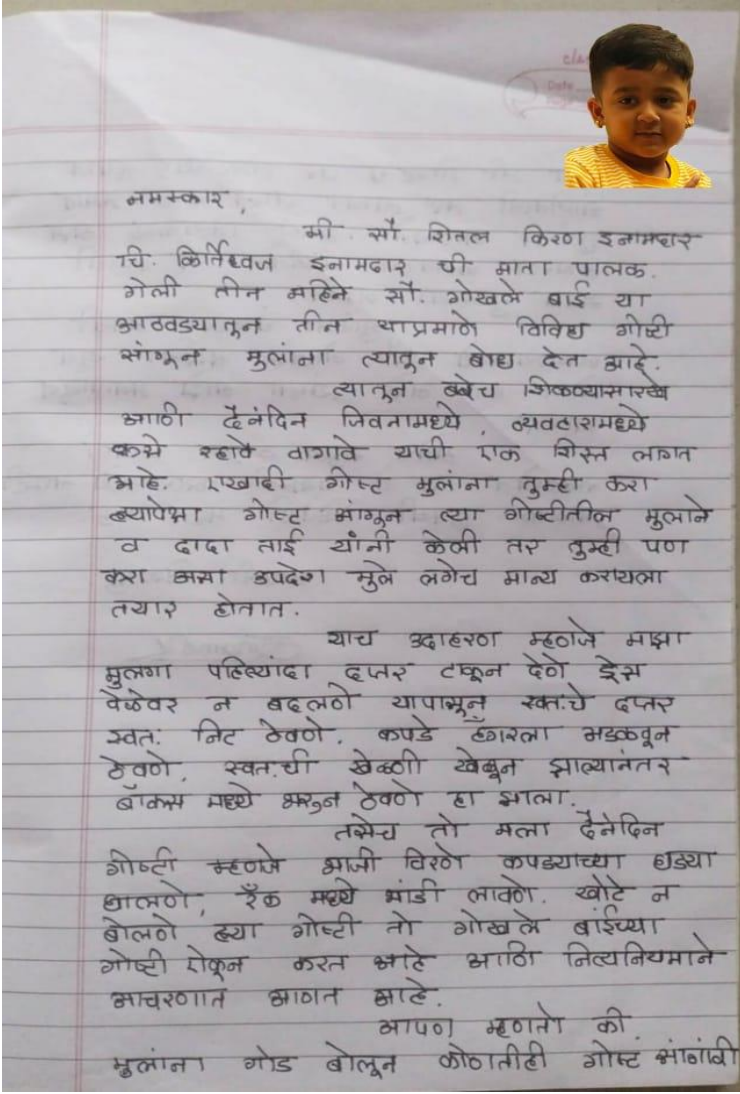 नमस्कार,
मी. सौ. शितल किरण इनामदार
चि. किर्तिध्वज इनामदार ची माता पालक.
गेली तीन महिने सौ. गोखले बाई या
आठवड्यातून तीन याप्रमाणे विविध गोष्टी
सांगून मुलांना त्यातून बोध देत आहे.
त्यातून बरेच शिकण्यासारखे
आणि दैनंदिन जिवनामध्ये, व्यवहारामध्ये
कसे रहावे वागावे याची एक शिस्त लागत
आहे. एखादी गोष्ट मुलांना तुम्ही करा
ह्यापेक्षा गोष्ट सांगून त्या गोष्टीतील मुलाने
व दादा ताई यांनी केली तर तुम्ही पण
करा असा उपदेश मुले लगेच मान्य करायला
तयार होतात.
याच उदाहरण म्हणजे माझा
मुलगा पहिल्यांदा दप्तर टाकून देणे ड्रेस
वेळेवर न बदलणे यापासून स्वतःचे दप्तर
स्वतः निट ठेवणे. कपडे हँगरला अडकवून
ठेवणे. स्वतःची खेळणी खेळून झाल्यानंतर
बॉक्स मध्ये भरून ठेवणे हा झाला.
तसेच तो मला दैनंदिन
गोष्टी म्हणजे भाजी चिरणे कपड्याच्या घड्या
घालणे, रँक मध्ये भांडी लावणे. खोटे न
बोलणे ह्या गोष्टी तो गोखले बाईंच्या
गोष्टी ऐकून करत आहे आणि नित्यनियमाने
आचरणात आणत आहे.
आपण म्हणतो की
मुलांना गोड बोलून कोणतीही गोष्ट सांगावी